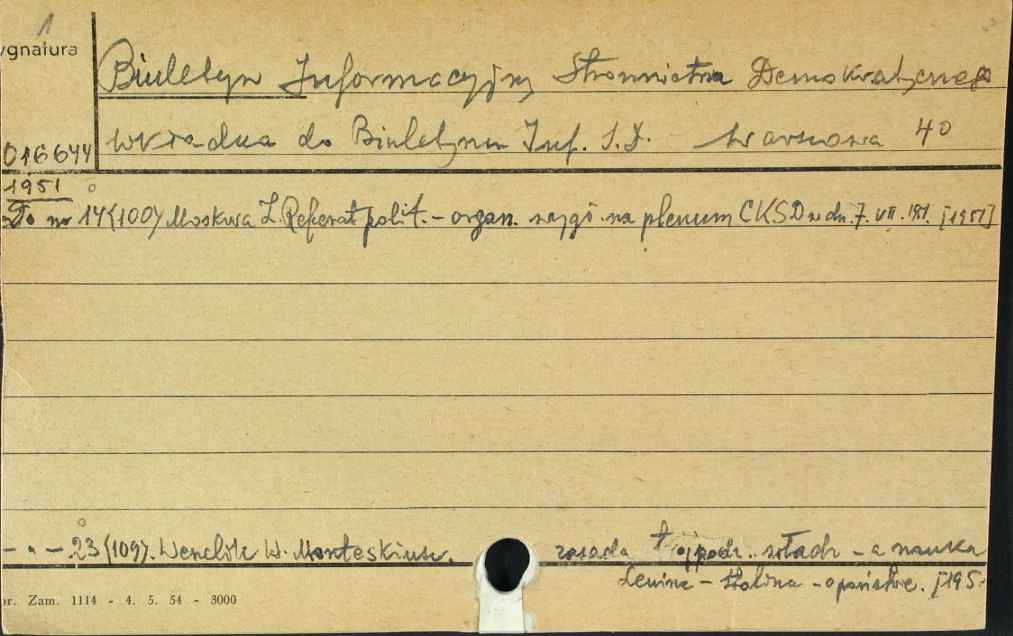 1
ygnatura
Biuletyn Informacyjny Stronnictwa Demokratycznego
016644 wkładka do Biuletynu Inf. S.D. Warszawa 4°
1951
Do nr 14(100) Moskwa Z. Referat polit. - organ. wygł. na plenum CKSD w dn. 7. VII. 1951. [1951]
- " - 23(109). Wenclik W. Monteskiusz. zasada podz. władz - a nauka
Lenina - Stalina - o państwie. [195
r. Zam. 1114 - 4. 5. 54 - 3000